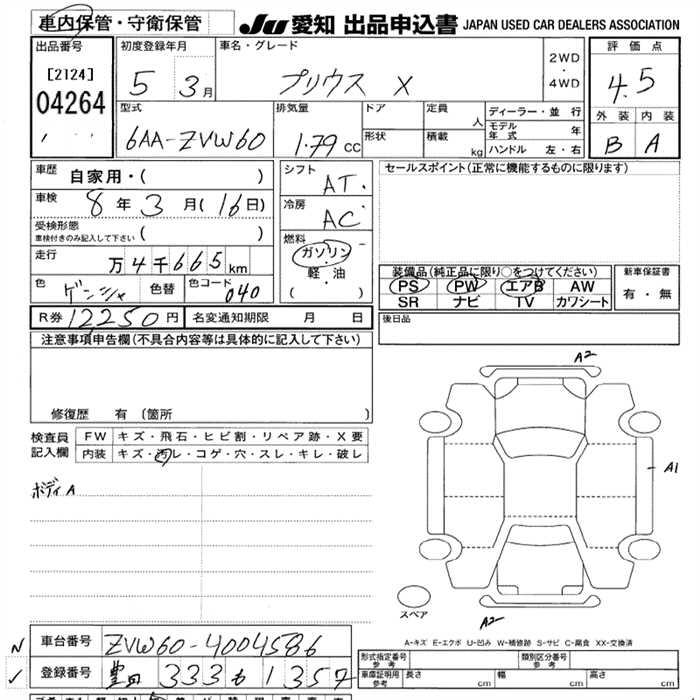 車内保管・守衛保管
JU 愛知 出品申込書 JAPAN USED CAR DEALERS ASSOCIATION
出品番号
[2124]
04264
初度登録年月
5 3月
車名・グレード
プリウス X
2WD
・
4WD
評価点
4.5
外装 内装
B A
型式
6AA-ZVW60
排気量
1.79 CC
ドア
形状
定員
人
積載
kg
ディーラー・並行
モデル年式 年
ハンドル 左・右
車歴
自家用・( )
車検
8年 3月(16日)
受検形態
車検付きのみ記入して下さい ( )
走行
万4千665km
色
ゲンシャ
色替
色コード
040
シフト
AT.
冷房
AC
燃料
ガソリン
・
軽・油
( )
セールスポイント(正常に機能するものに限ります)
装備品(純正品に限り○をつけてください)
PS PW エアB AW
SR ナビ TV カワシート
新車保証書
有・無
R券 12,250円
名変通知期限 月 日
後日品
注意事項申告欄(不具合内容等は具体的に記入して下さい)
修復歴 有 〔箇所 〕
検査員
記入欄
FW キズ・飛石・ヒビ割・リペア跡・X要
内装 キズ・汚レ・コゲ・穴・スレ・キレ・破レ
ボディA
A2
A1
A2
スペア
A-キズ E-エクボ U-凹み W-補修跡 S-サビ C-腐食 XX-交換済
N
車台番号 ZVW60-4004586
✓
登録番号 豊田 333 も 1357
形式指定番号
参考
類別区分番号
参考
車庫証明用
参考
長さ cm 幅 cm 高さ cm